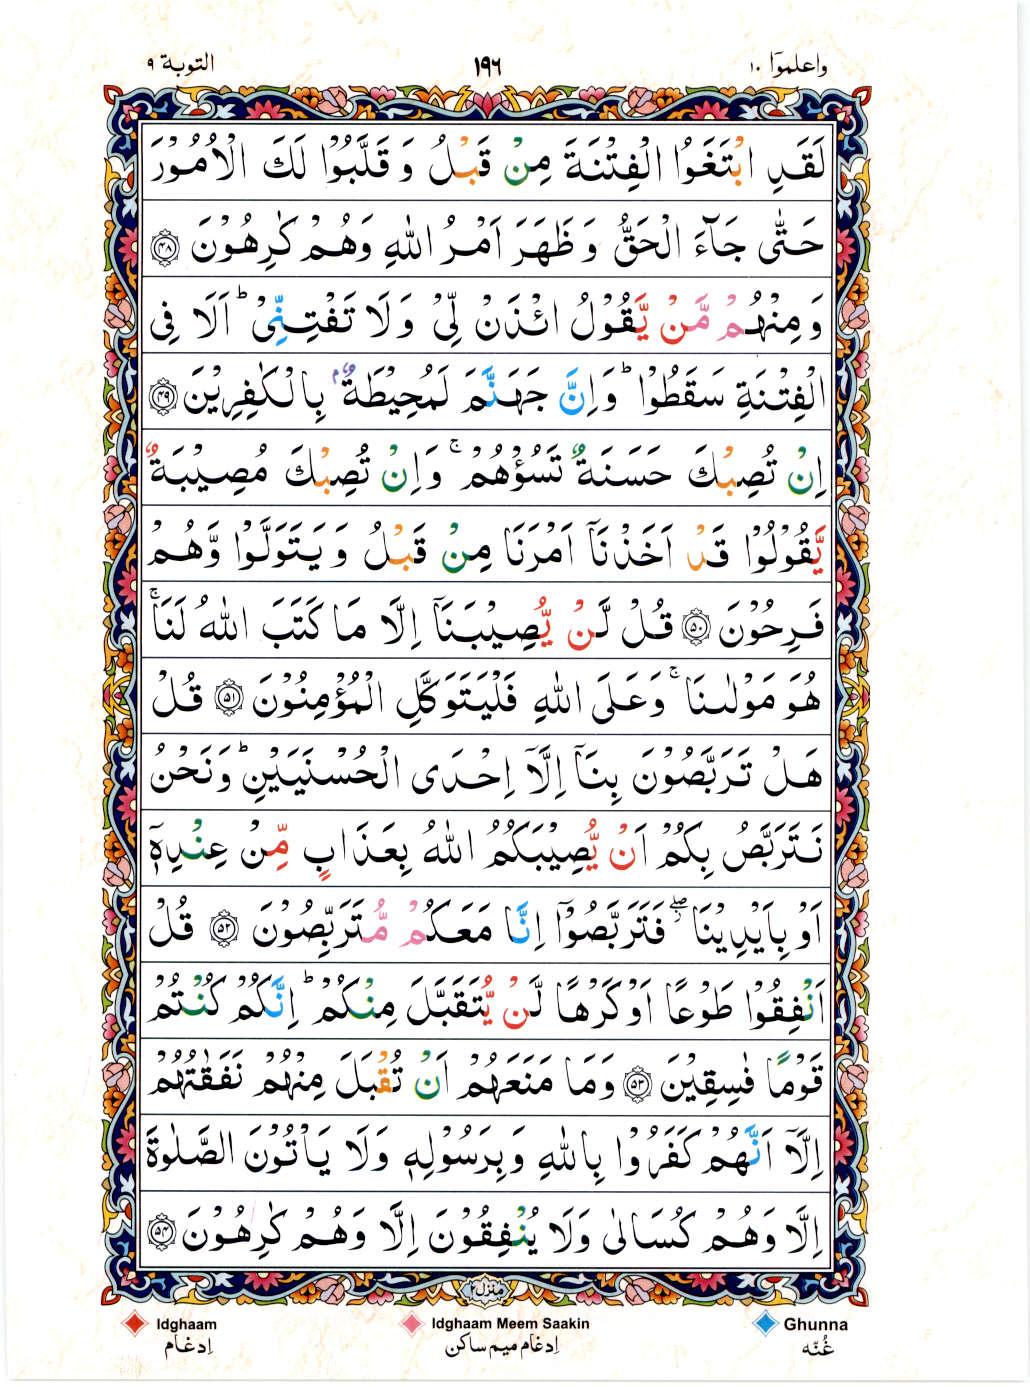 التوبة ٩ ١٩٦ واعلموٓا ١٠
لَقَدِ ابْتَغَوُا الْفِتْنَةَ مِنْ قَبْلُ وَ قَلَّبُوْا لَكَ الْاُمُوْرَ
حَتّٰى جَآءَ الْحَقُّ وَ ظَهَرَ اَمْرُ اللّٰهِ وَهُمْ كٰرِهُوْنَ ۝٤٨
وَمِنْهُمْ مَّنْ يَّقُوْلُ ائْذَنْ لِّيْ وَ لَا تَفْتِنِّيْ ؕ اَلَا فِى
الْفِتْنَةِ سَقَطُوْا ؕ وَاِنَّ جَهَنَّمَ لَمُحِيْطَةٌۢ بِالْكٰفِرِيْنَ ۝٤٩
اِنْ تُصِبْكَ حَسَنَةٌ تَسُؤْهُمْ ۚ وَاِنْ تُصِبْكَ مُصِيْبَةٌ
يَّقُوْلُوْا قَدْ اَخَذْنَاۤ اَمْرَنَا مِنْ قَبْلُ وَ يَتَوَلَّوْا وَّهُمْ
فَرِحُوْنَ ۝٥٠ قُلْ لَّنْ يُّصِيْبَنَاۤ اِلَّا مَا كَتَبَ اللّٰهُ لَنَا ۚ
هُوَ مَوْلٰىنَا ۚ وَعَلَى اللّٰهِ فَلْيَتَوَكَّلِ الْمُؤْمِنُوْنَ ۝٥١ قُلْ
هَلْ تَرَبَّصُوْنَ بِنَاۤ اِلَّاۤ اِحْدَى الْحُسْنَيَيْنِ ؕ وَنَحْنُ
نَتَرَبَّصُ بِكُمْ اَنْ يُّصِيْبَكُمُ اللّٰهُ بِعَذَابٍ مِّنْ عِنْدِهٖۤ
اَوْ بِاَيْدِيْنَا ۖ ؗ فَتَرَبَّصُوْۤا اِنَّا مَعَكُمْ مُّتَرَبِّصُوْنَ ۝٥٢ قُلْ
اَنْفِقُوْا طَوْعًا اَوْ كَرْهًا لَّنْ يُّتَقَبَّلَ مِنْكُمْ ؕ اِنَّكُمْ كُنْتُمْ
قَوْمًا فٰسِقِيْنَ ۝٥٣ وَمَا مَنَعَهُمْ اَنْ تُقْبَلَ مِنْهُمْ نَفَقٰتُهُمْ
اِلَّاۤ اَنَّهُمْ كَفَرُوْا بِاللّٰهِ وَبِرَسُوْلِهٖ وَلَا يَاْتُوْنَ الصَّلٰوةَ
اِلَّا وَهُمْ كُسَالٰى وَلَا يُنْفِقُوْنَ اِلَّا وَهُمْ كٰرِهُوْنَ ۝٥٤
منزل ٢
Idghaam Idghaam Meem Saakin Ghunna
اِدغَام اِدغام میم ساکن غُنّه